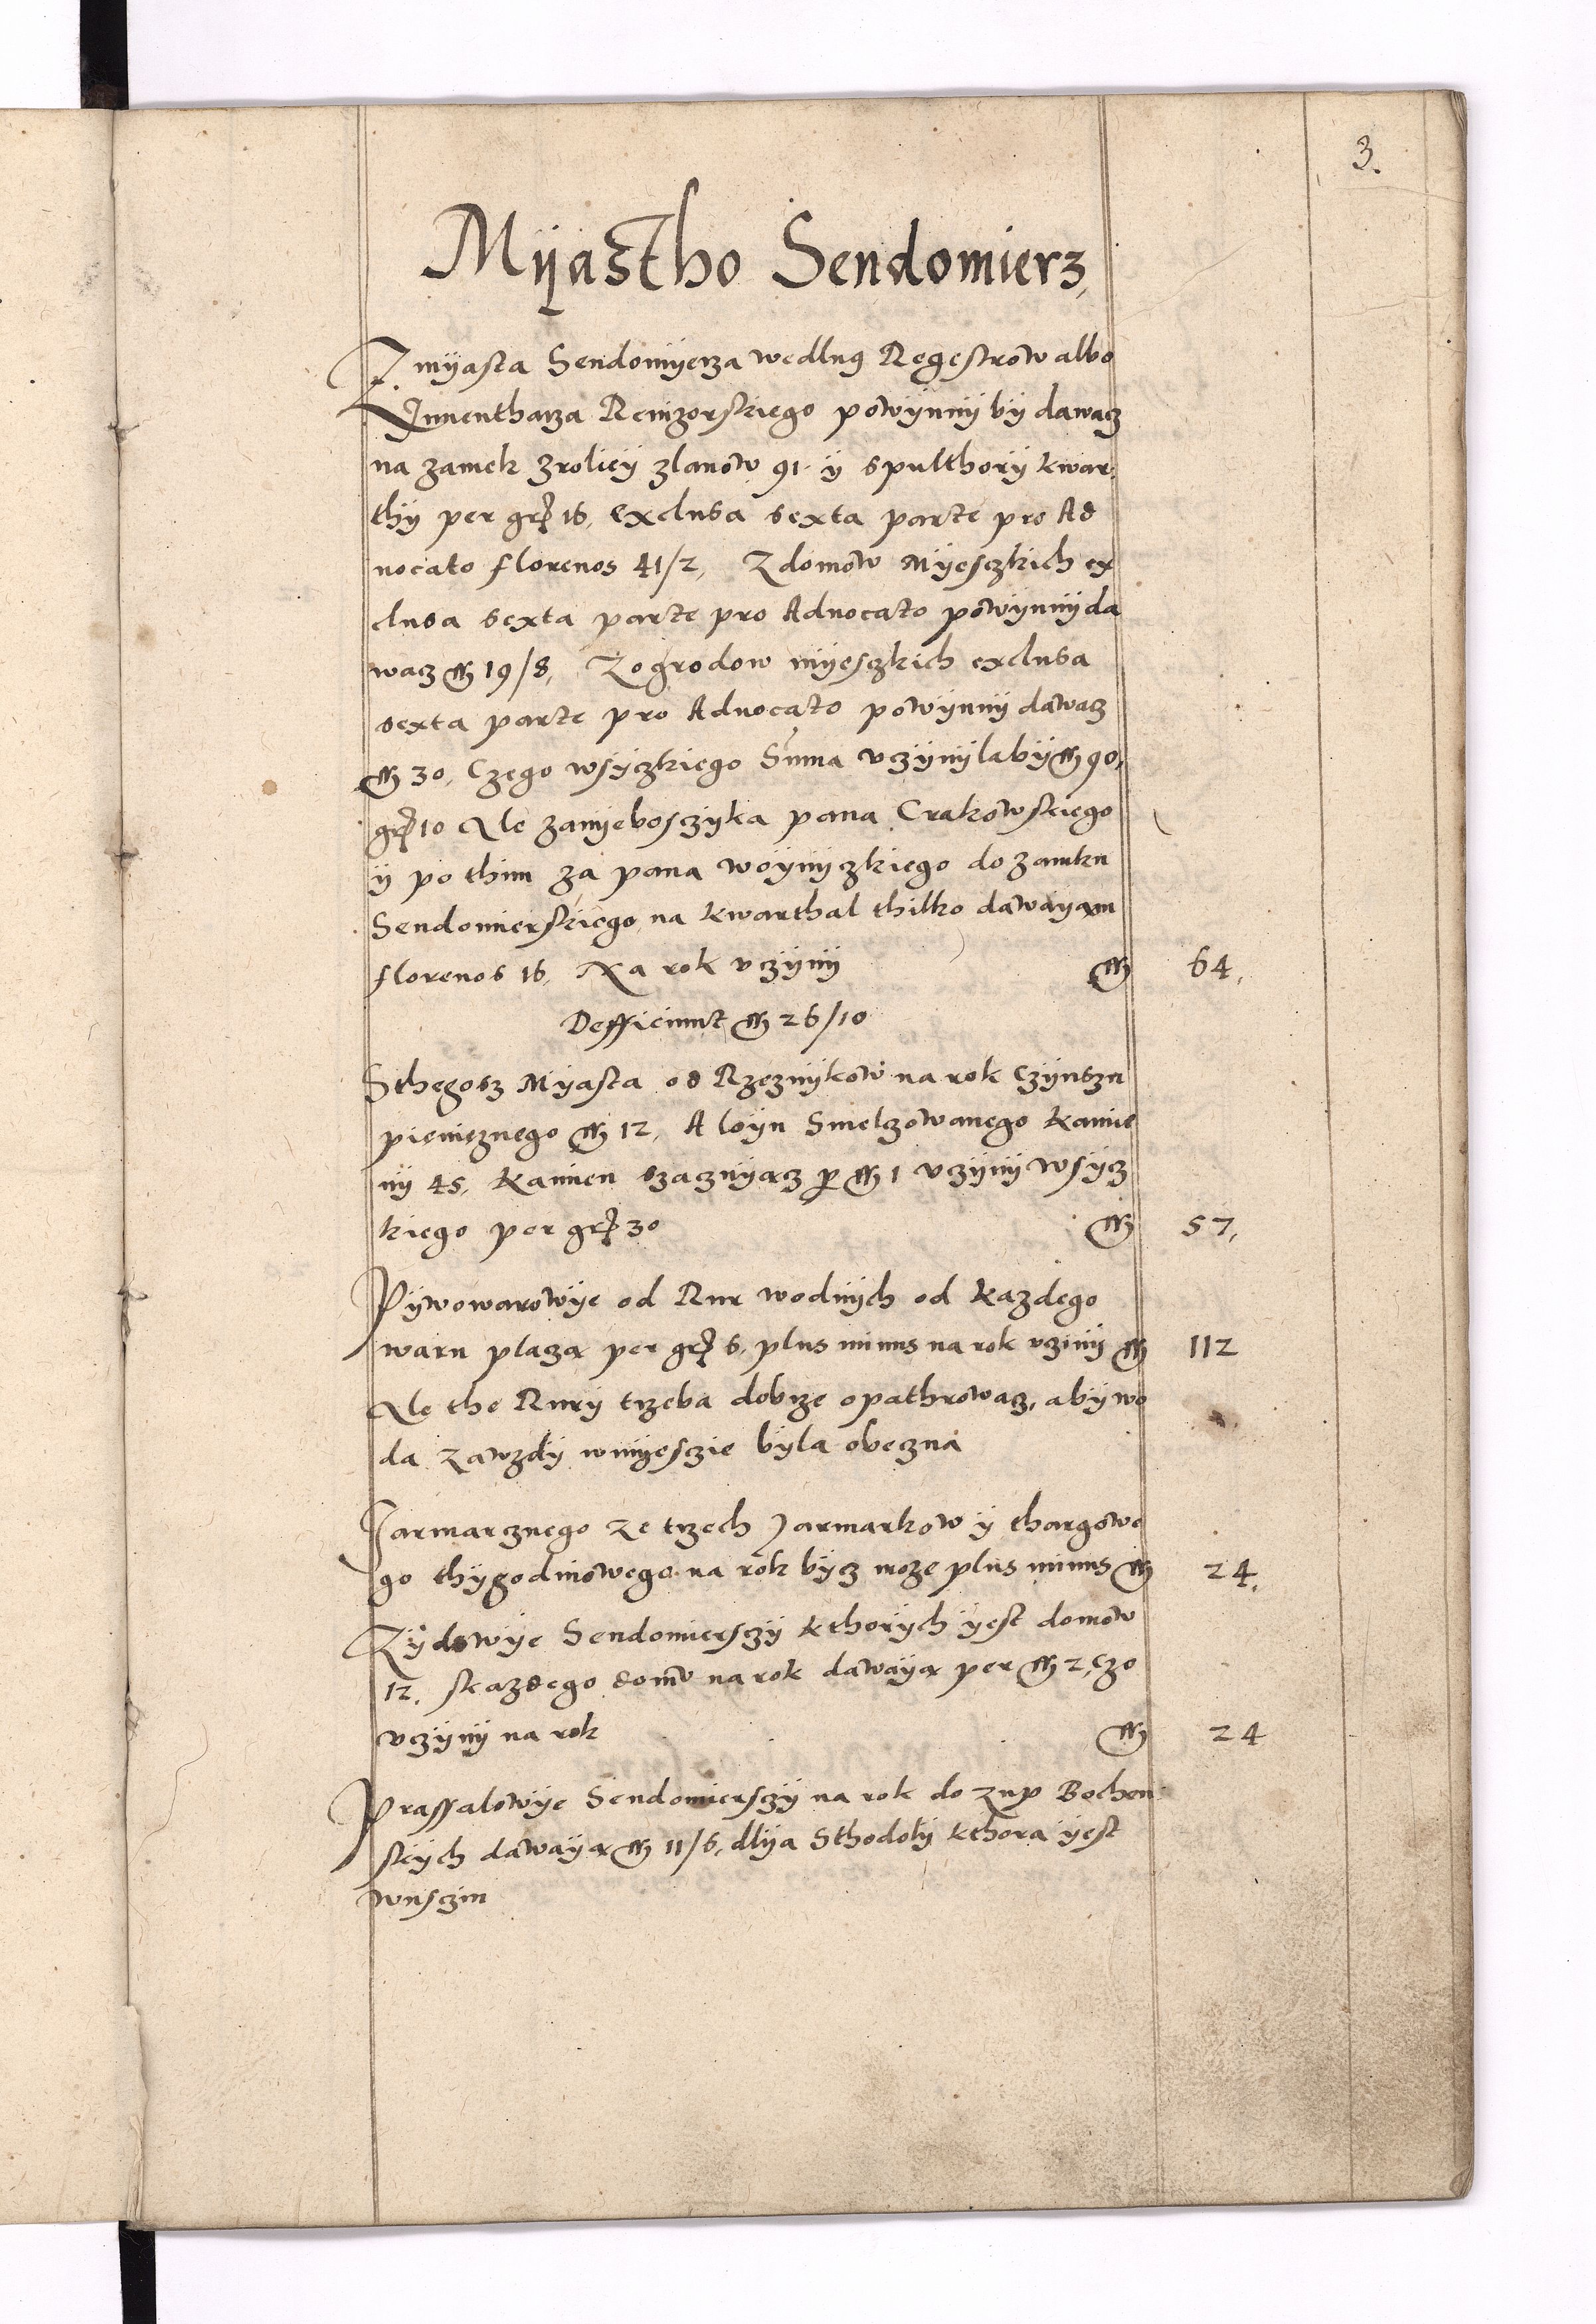 3.
Myastho Sendomierz,
Z myasta Sendomyerza wedlug Regestrow albo
Inuentharza Reuizorskiego powynny by dawacz
na zamek zroliey zlanow 91 y spulthory kwar
thy per gr 16, exclusa sexta parte pro Ad
uocato florenos 41/2, Z domow Myesczkich ex
clusa sexta parte pro Aduocato powynny da
wacz fl 19/8, Zogrodow myesczkich exclusa
sexta parte pro Aduocato powynny dawacz
fl 30, Czego wsyczkiego Suma vczynylaby fl 90,
gr 10 Ale zanyeboszyka pana Crakowskiego
y po thim za pana woynyczkiego do zamku
Sendomierskiego na kwarthal thilko dawayam
florenos 16, Na rok vczyny fl 64,
Defficiunt fl 26/10
Sthegosz Myasta od Rzeznykow na rok Czynszu
pienieznego fl 12, A loyu Smelczowanego kamie
ny 45, Kamien szacznyacz per fl 1 vczyny wsycz
kiego per gr 30 fl 57,
Pywowarowye od Rur wodnych od kazdego
waru placza per gr 6, plus minus na rok vczini fl 112
Ale the Rury trzeba dobrze opathrowacz, aby wo
da zawzdy wmyesczie byla obeczna
Jarmarcznego ze trzech Jarmarkow y thargowe
go thygodniowego na rok bycz moze plus minus fl 24,
Zydowye Sendomierszy kthorych yest domow
12, skazdego domu na rok dawaya per fl 2, czo
vczyny na rok fl 24
Prassalowye Sendomierszy na rok do zup Bochen
skych dawaya fl 11/6, dlya Sthodoly kthora yest